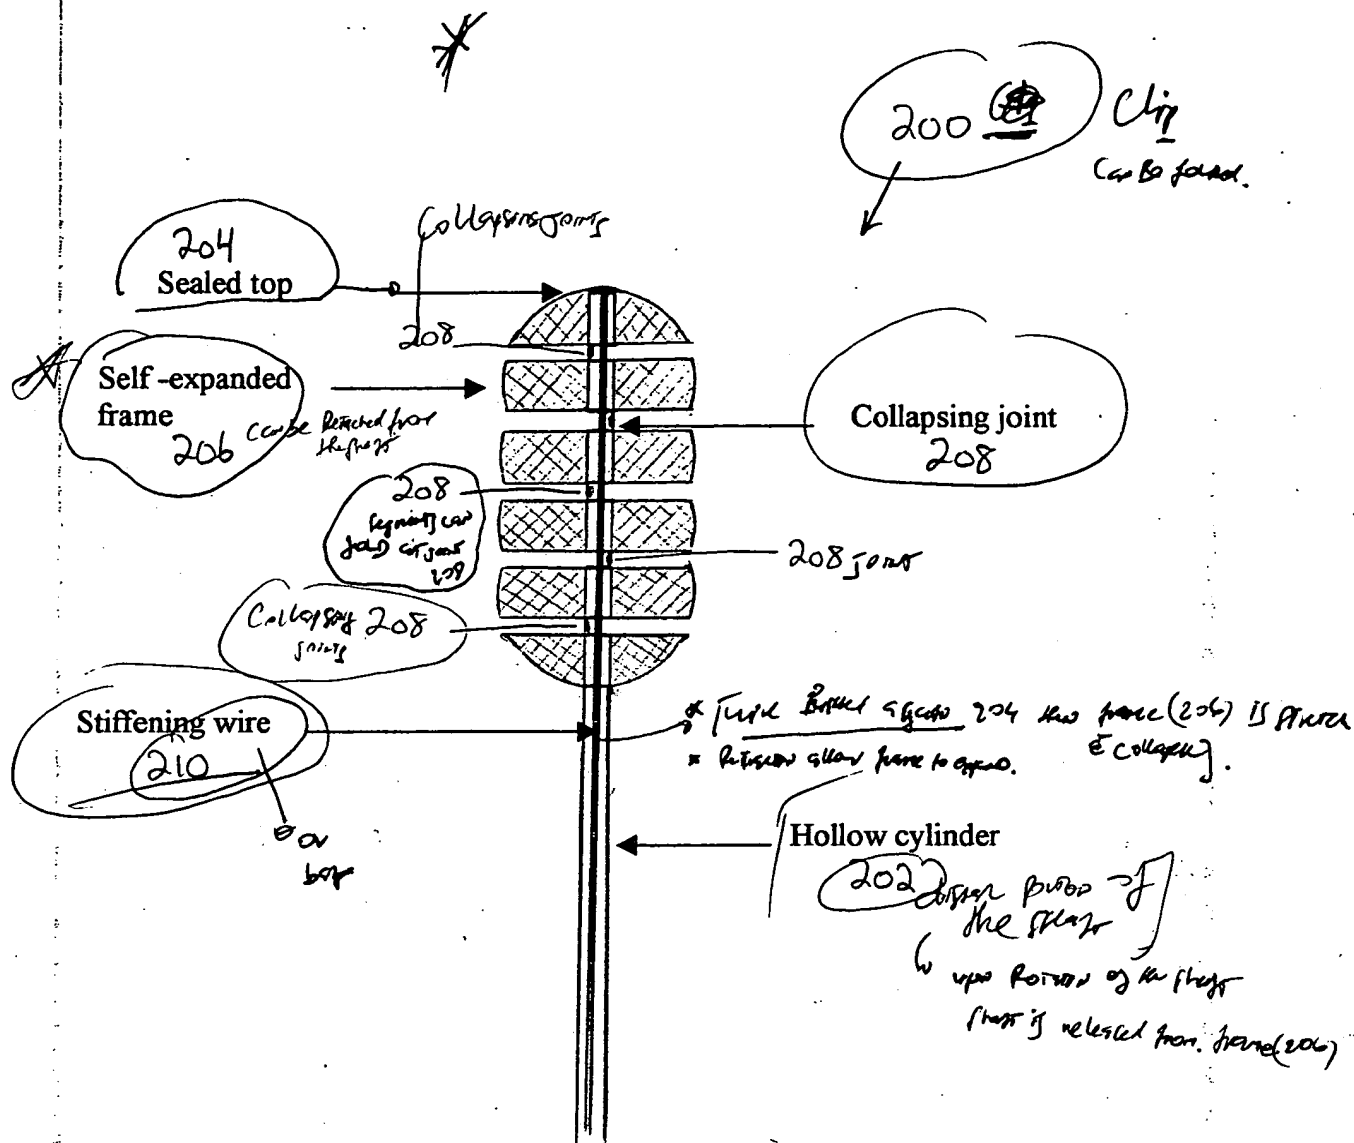 200
Clip
Can Be
204
Sealed top
Collapsing Joints
208
Self -expanded
frame
206
can be Detached from
the shaft
Collapsing joint
208
208
segments can
fold at joint
208
208 joint
Collapsing 208
joints
Stiffening wire
210
or
204 then frame (206) is
& collapse
allow frame to expand.
Hollow cylinder
202
portion of
the shaft
upon Rotation of the shaft
shaft is released from frame (206)